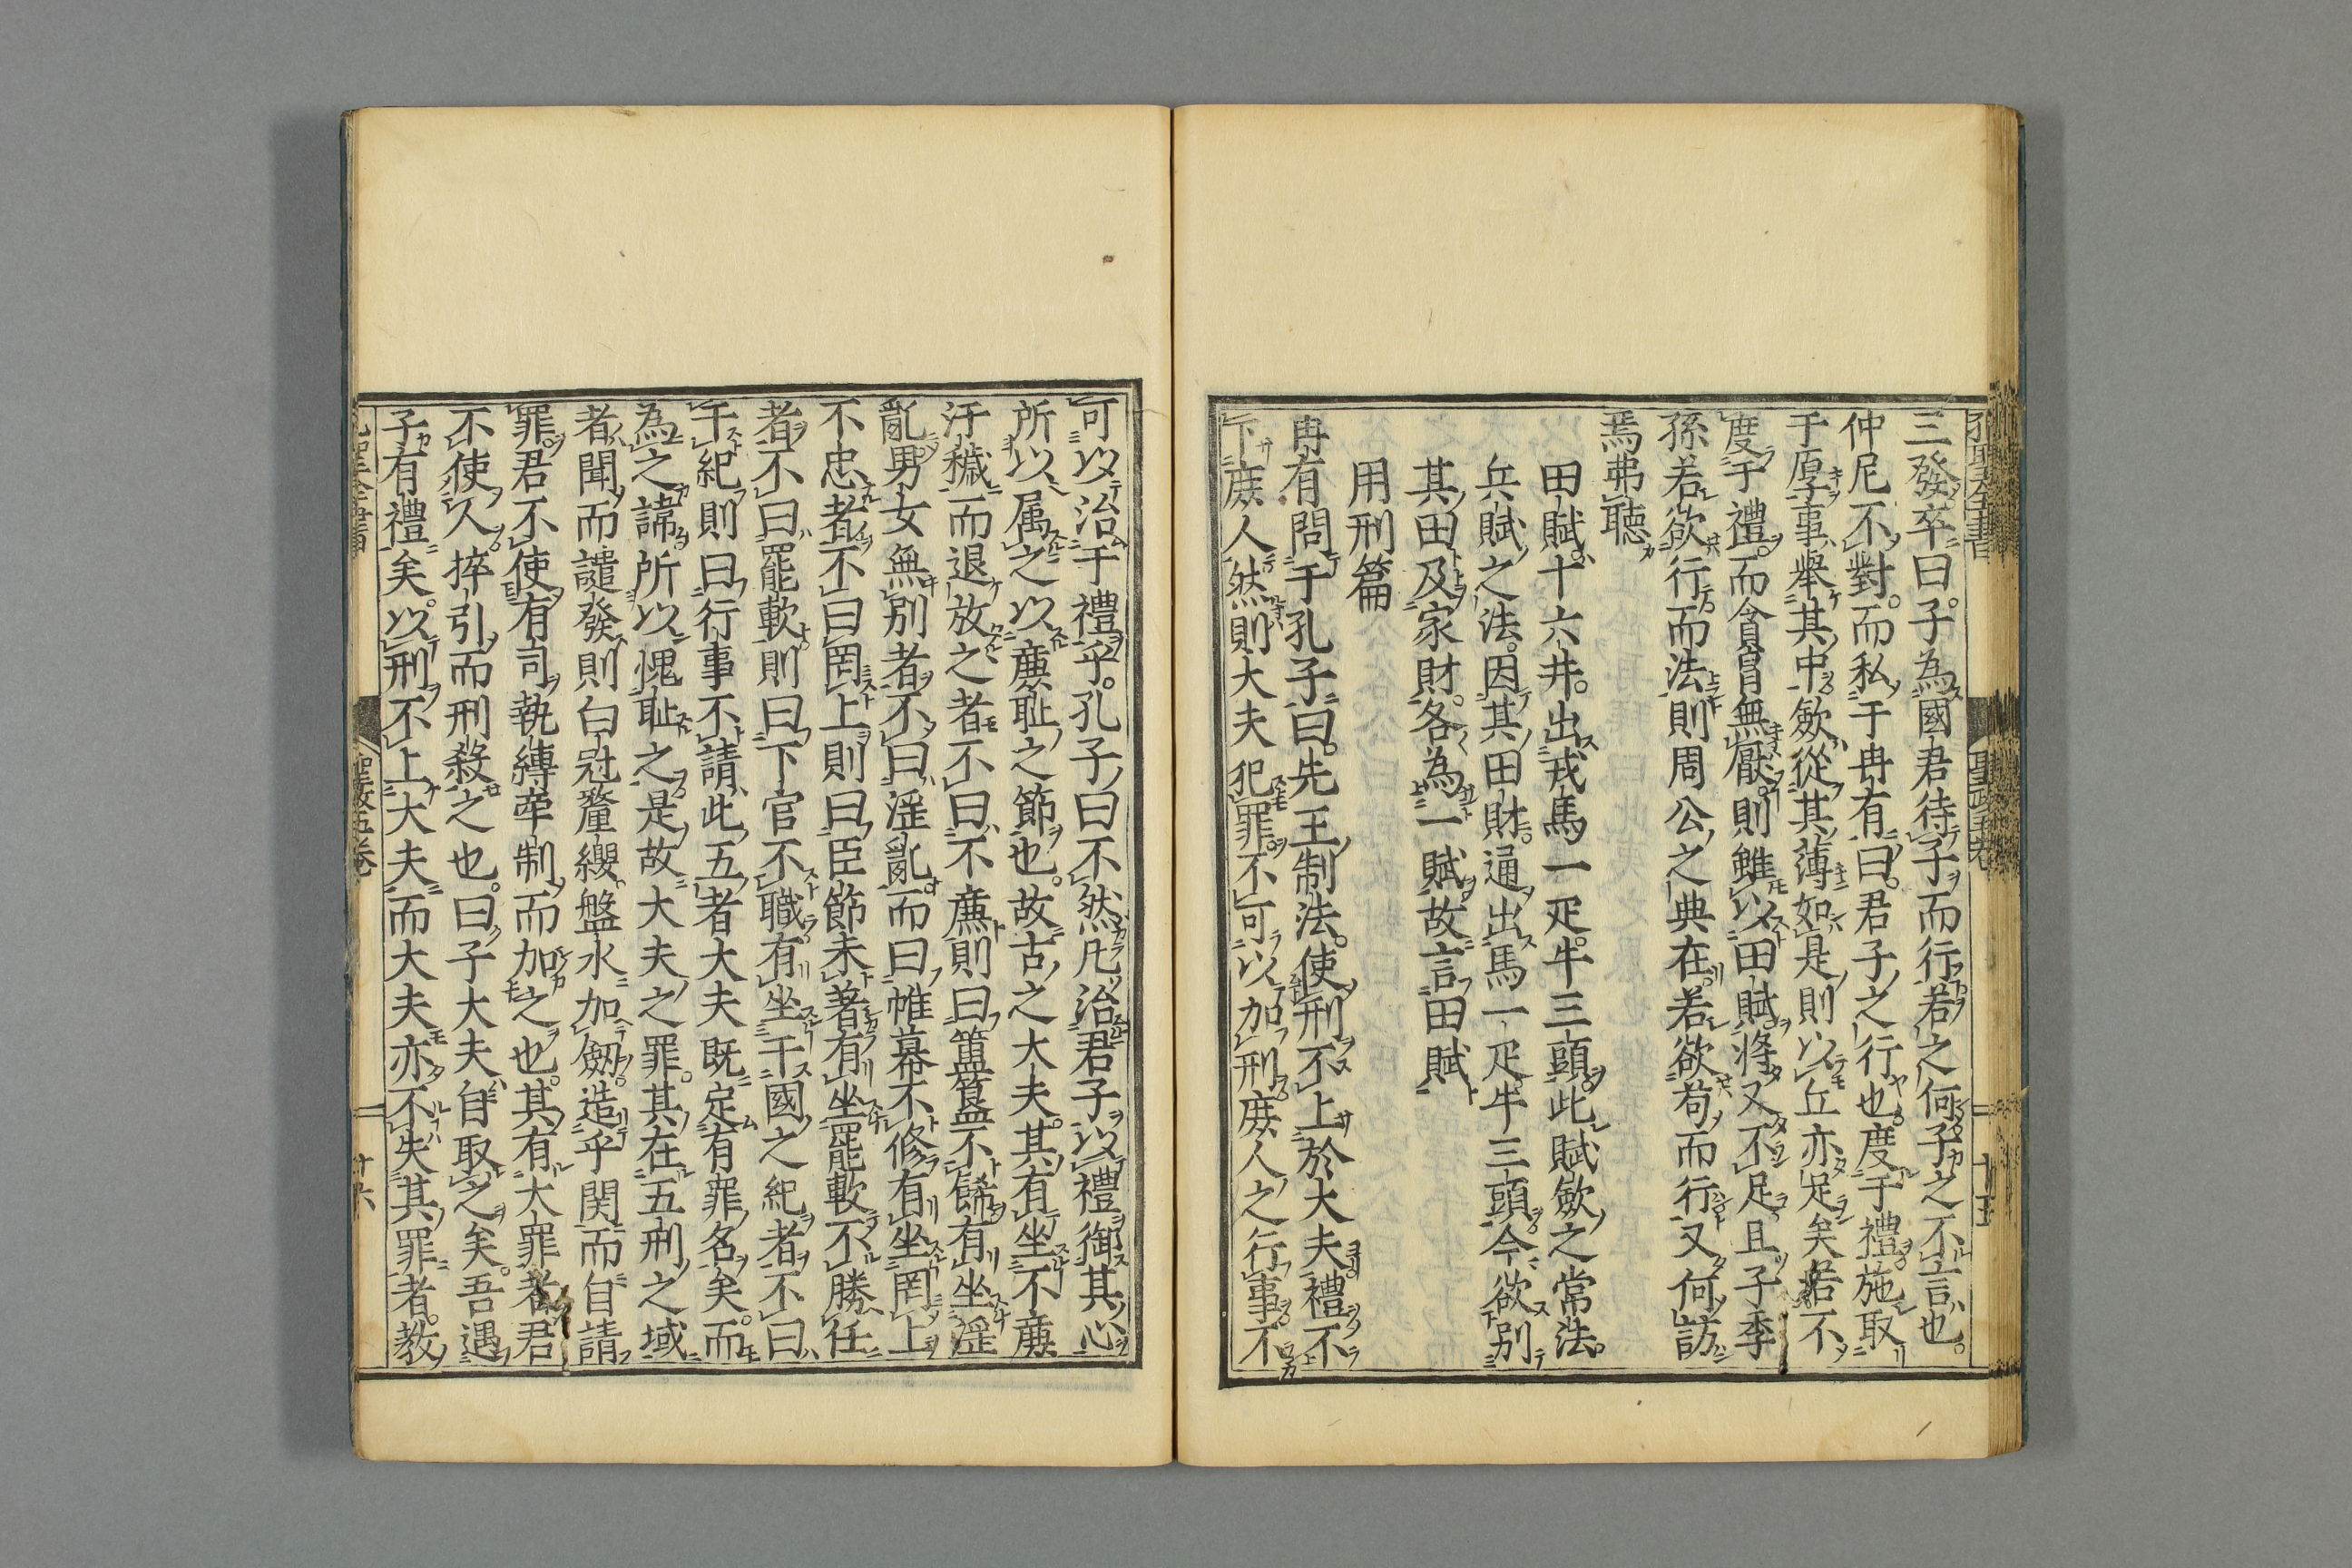 三發卒曰。子為國君待子而行若之何子之不言也。
仲尼不對。而私于冉有曰。君子之行也度于禮施取
于厚事舉其中斂從其薄如是則以丘亦足矣若不
度于禮。而貪冒無厭。則雖以田賦將又不足且子季
孫若欲行而法則周公之典在若欲苟而行又何訪
焉弗聽
田賦十六井。出戎馬一疋。牛三頭。此賦斂之常法。
兵賦之法。因其田財。通出馬一疋。牛三頭。今欲別
其田及家財。各為一賦故言田賦
用刑篇
冉有問于孔子曰。先王制法。使刑不上於大夫禮不
下庶人然則大夫犯罪。不可以加刑庶人之行事不
可以治于禮乎。孔子曰不然凡治君子以禮御其心
所以属之以廉耻之節也。故古之大夫。其有坐不廉
汙穢而退放之者不曰不廉則曰簠簋不飾有坐淫
亂男女無別者不曰淫亂而曰帷幕不修有坐罔上
不忠者不曰罔上則曰臣節未著有坐罷軟不勝任
者不曰罷軟則曰下官不職有坐干國之紀者不曰
干紀則曰行事不請此五者大夫既定有罪名矣。而
為之諱所以愧耻之是故大夫之罪。其在五刑之域
者聞而譴發則白冠釐纓盤水加劔。造乎関而自請
罪。君不使有司執縛牽制而加之也。其有大罪者君
不使人捽引而刑殺之也。曰子大夫自取之矣。吾遇
子有禮矣。以刑不上大夫而大夫亦不失其罪者。教
聖政五卷
十五
十六